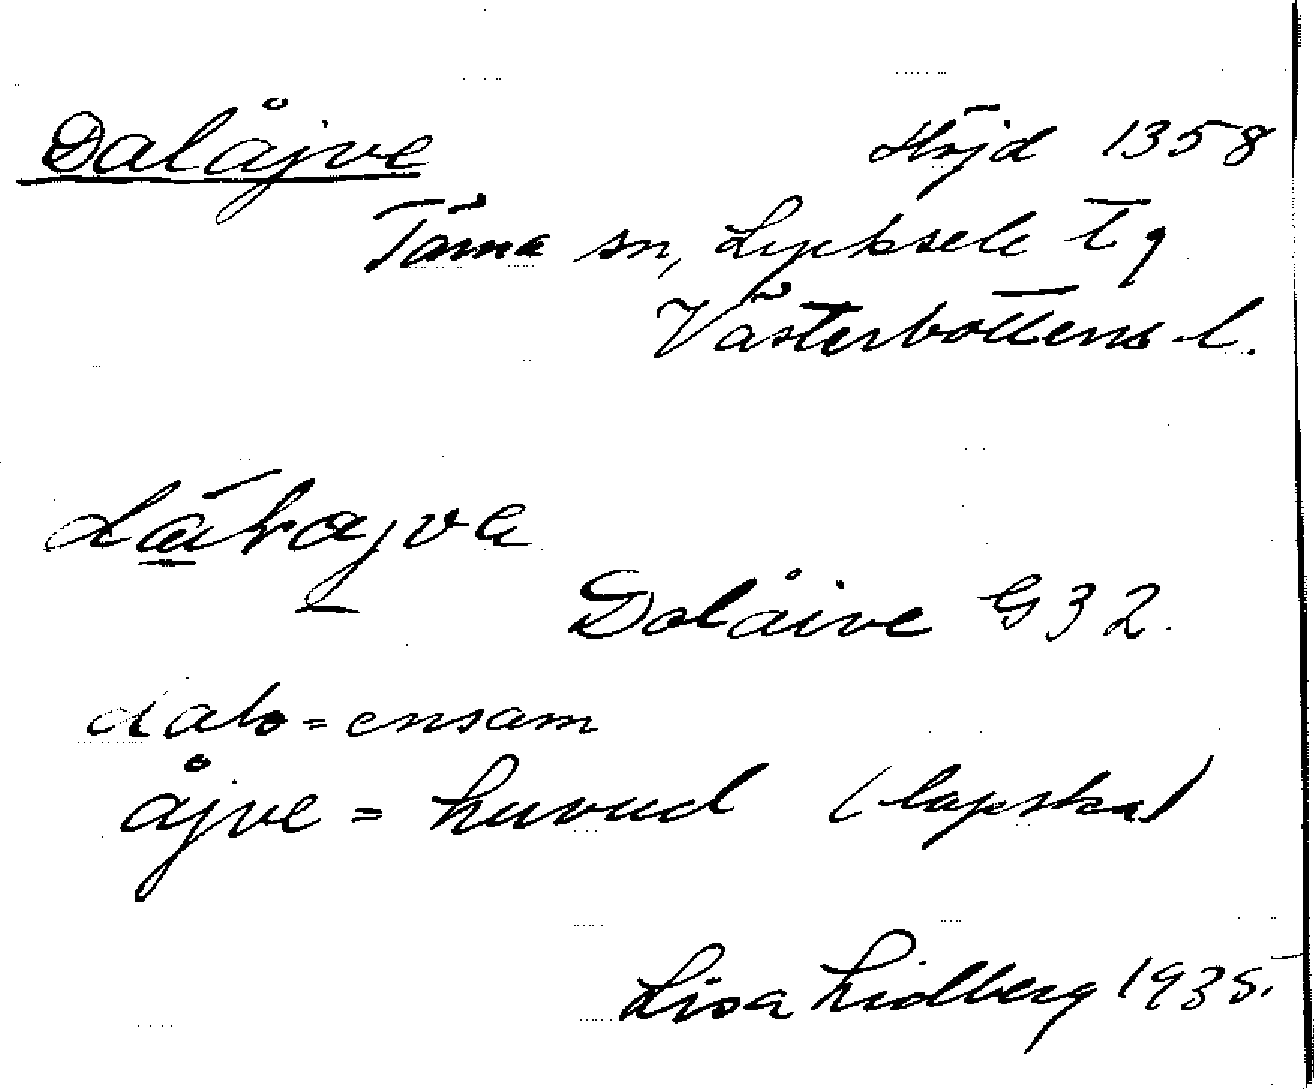 Dalåjve Höjd 1358
Tärna sn, Lycksele tg
Västerbottens l.
Dalåive G 32.
dalo = ensam
åjve = huvud (lapska)
Lisa Lidberg 1935.